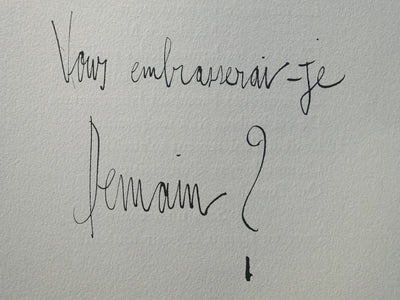 Vous embrasserai-je
Demain ?